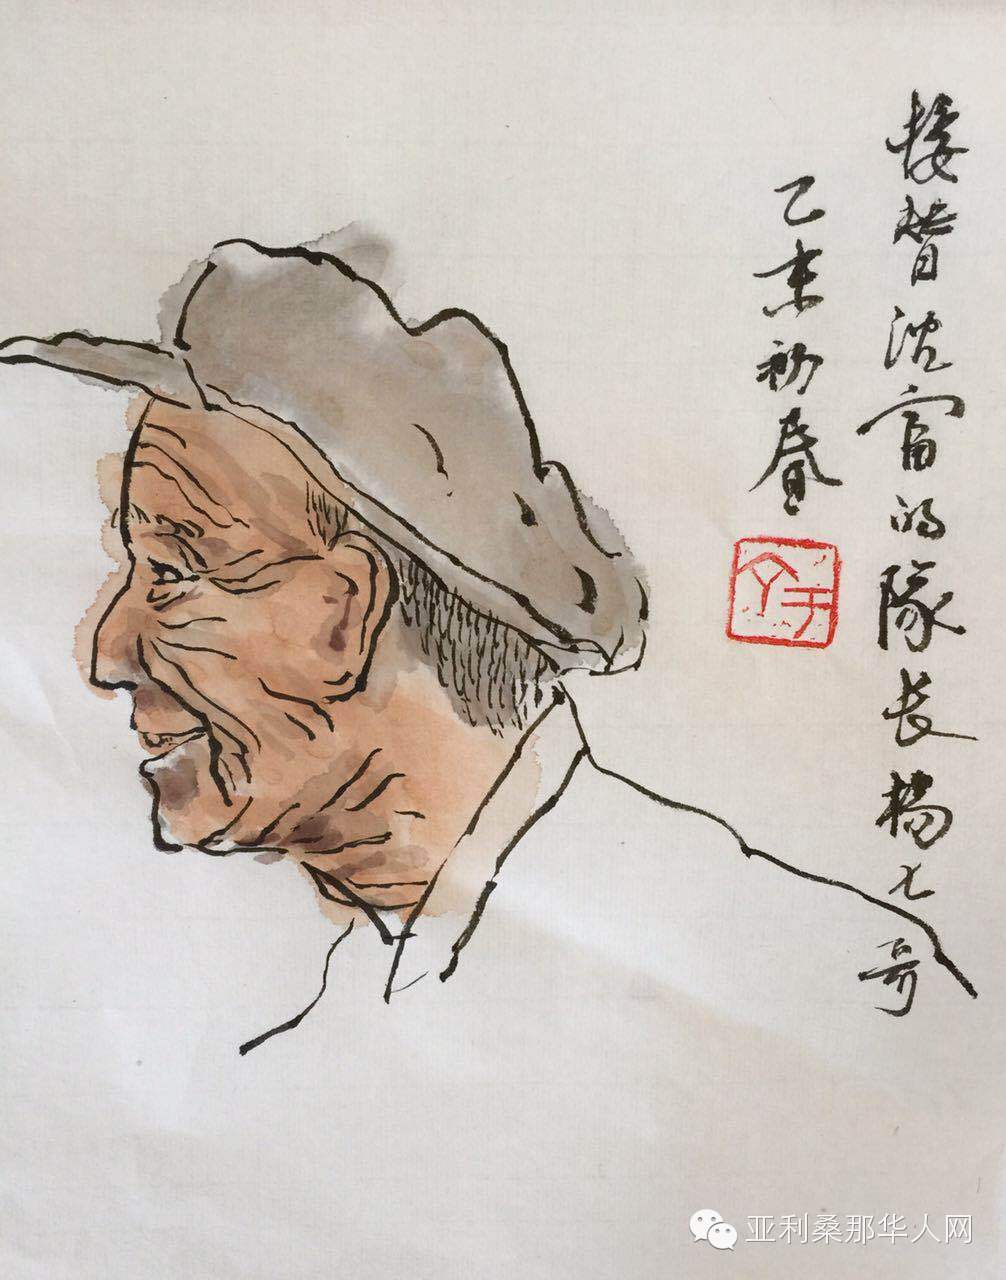 接替沈富的隊长楊七哥
乙未初春
文手
亚利桑那华人网